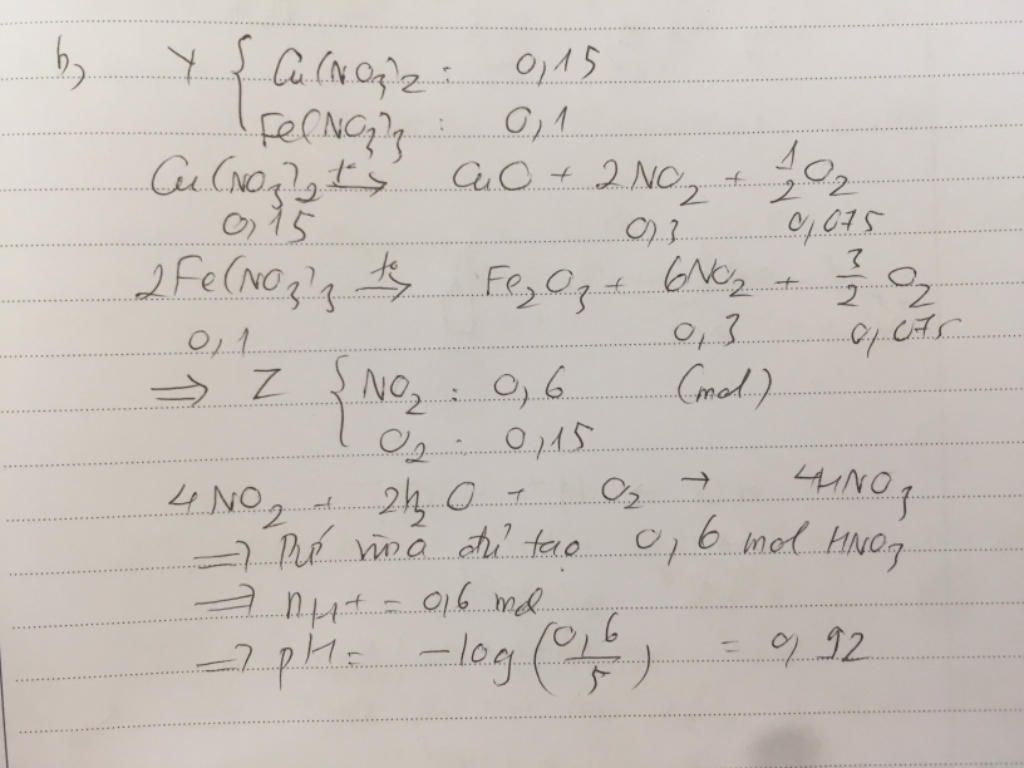 b, Y { Cu(NO3)2 : 0,15
Fe(NO3)3 : 0,1
Cu(NO3)2 t° → CuO + 2NO2 + 1/2 O2
0,15 0,3 0,075
2Fe(NO3)3 t° → Fe2O3 + 6NO2 + 3/2 O2
0,1 0,3 0,075
⇒ Z { NO2 : 0,6 (mol)
O2 : 0,15
4NO2 + 2H2O + O2 → 4HNO3
⇒ Pứ vừa đủ tạo 0,6 mol HNO3
⇒ nH+ = 0,6 mol
⇒ pH = -log(0,6/5) = 0,92